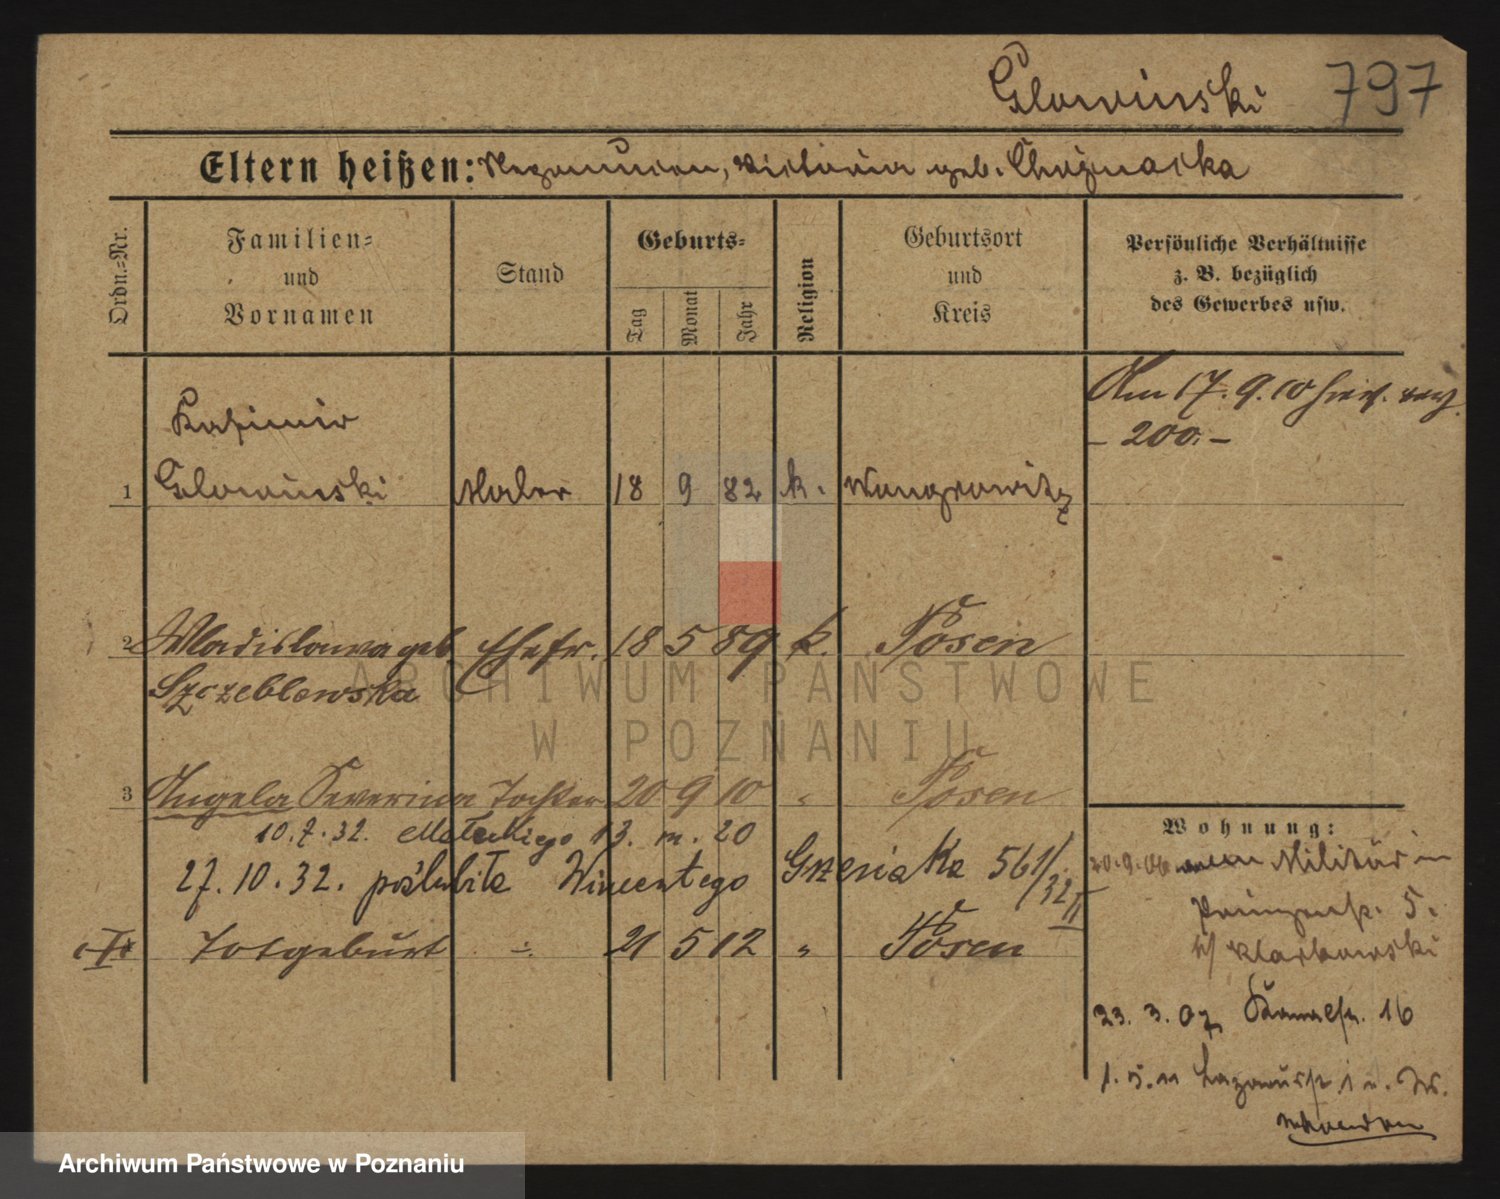 Glowinski 797
Eltern heißen: Victoria geb.
Ordn.-Nr.
Familien- und Vornamen
Stand
Geburts-
Tag
Monat
Jahr
Religion
Geburtsort und Kreis
Persönliche Verhältnisse z. B. bezüglich des Gewerbes usw.
Am 17. 9. 10
- 200.-
Kasimir
1 Glowinski Maler 18 9 82 k. Wongrowitz
2 Wladislawa geb Ehefr. 18 5 89 k. Posen
Szczeblewska
3 Angela Severina Tochter 20 9 10 " Posen
10.7.32. 13. m. 20
27.10.32. poślubiła Wincentego Grzesiaka 561/32 II
Totgeburt -:- 21 5 12 " Posen
Wohnung:
20.9.06 Militär in
5.
23. 3. 07 16
1. 5. 11
ARCHIWUM PAŃSTWOWE
W POZNANIU
Archiwum Państwowe w Poznaniu